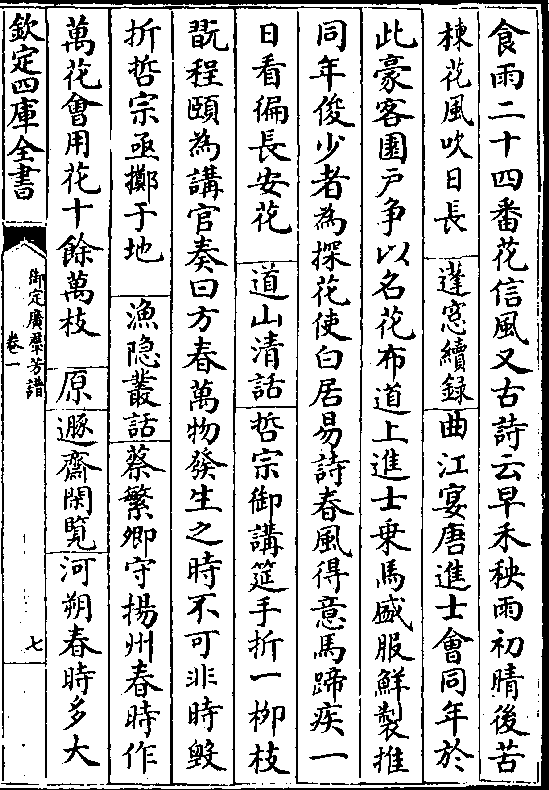 食雨二十四番花信風又古詩云早禾秧雨初晴後苦
楝花風吹日長　蓬窓續録　曲江宴唐進士會同年於
此豪客園戸争以名花布道上進士乗馬盛服鮮製推
同年俊少者為探花使白居易詩春風得意馬蹄疾一
日看徧長安花　道山清話　哲宗御講筵手折一栁枝
翫程頤為講官奏曰方春萬物發生之時不可非時毁
折哲宗亟擲于地　漁隐叢話　蔡繁卿守揚州春時作
萬花會用花十餘萬枝　原　遯齋閑覧　河朔春時多大
欽定四庫全書
御定廣羣芳譜
卷一
七